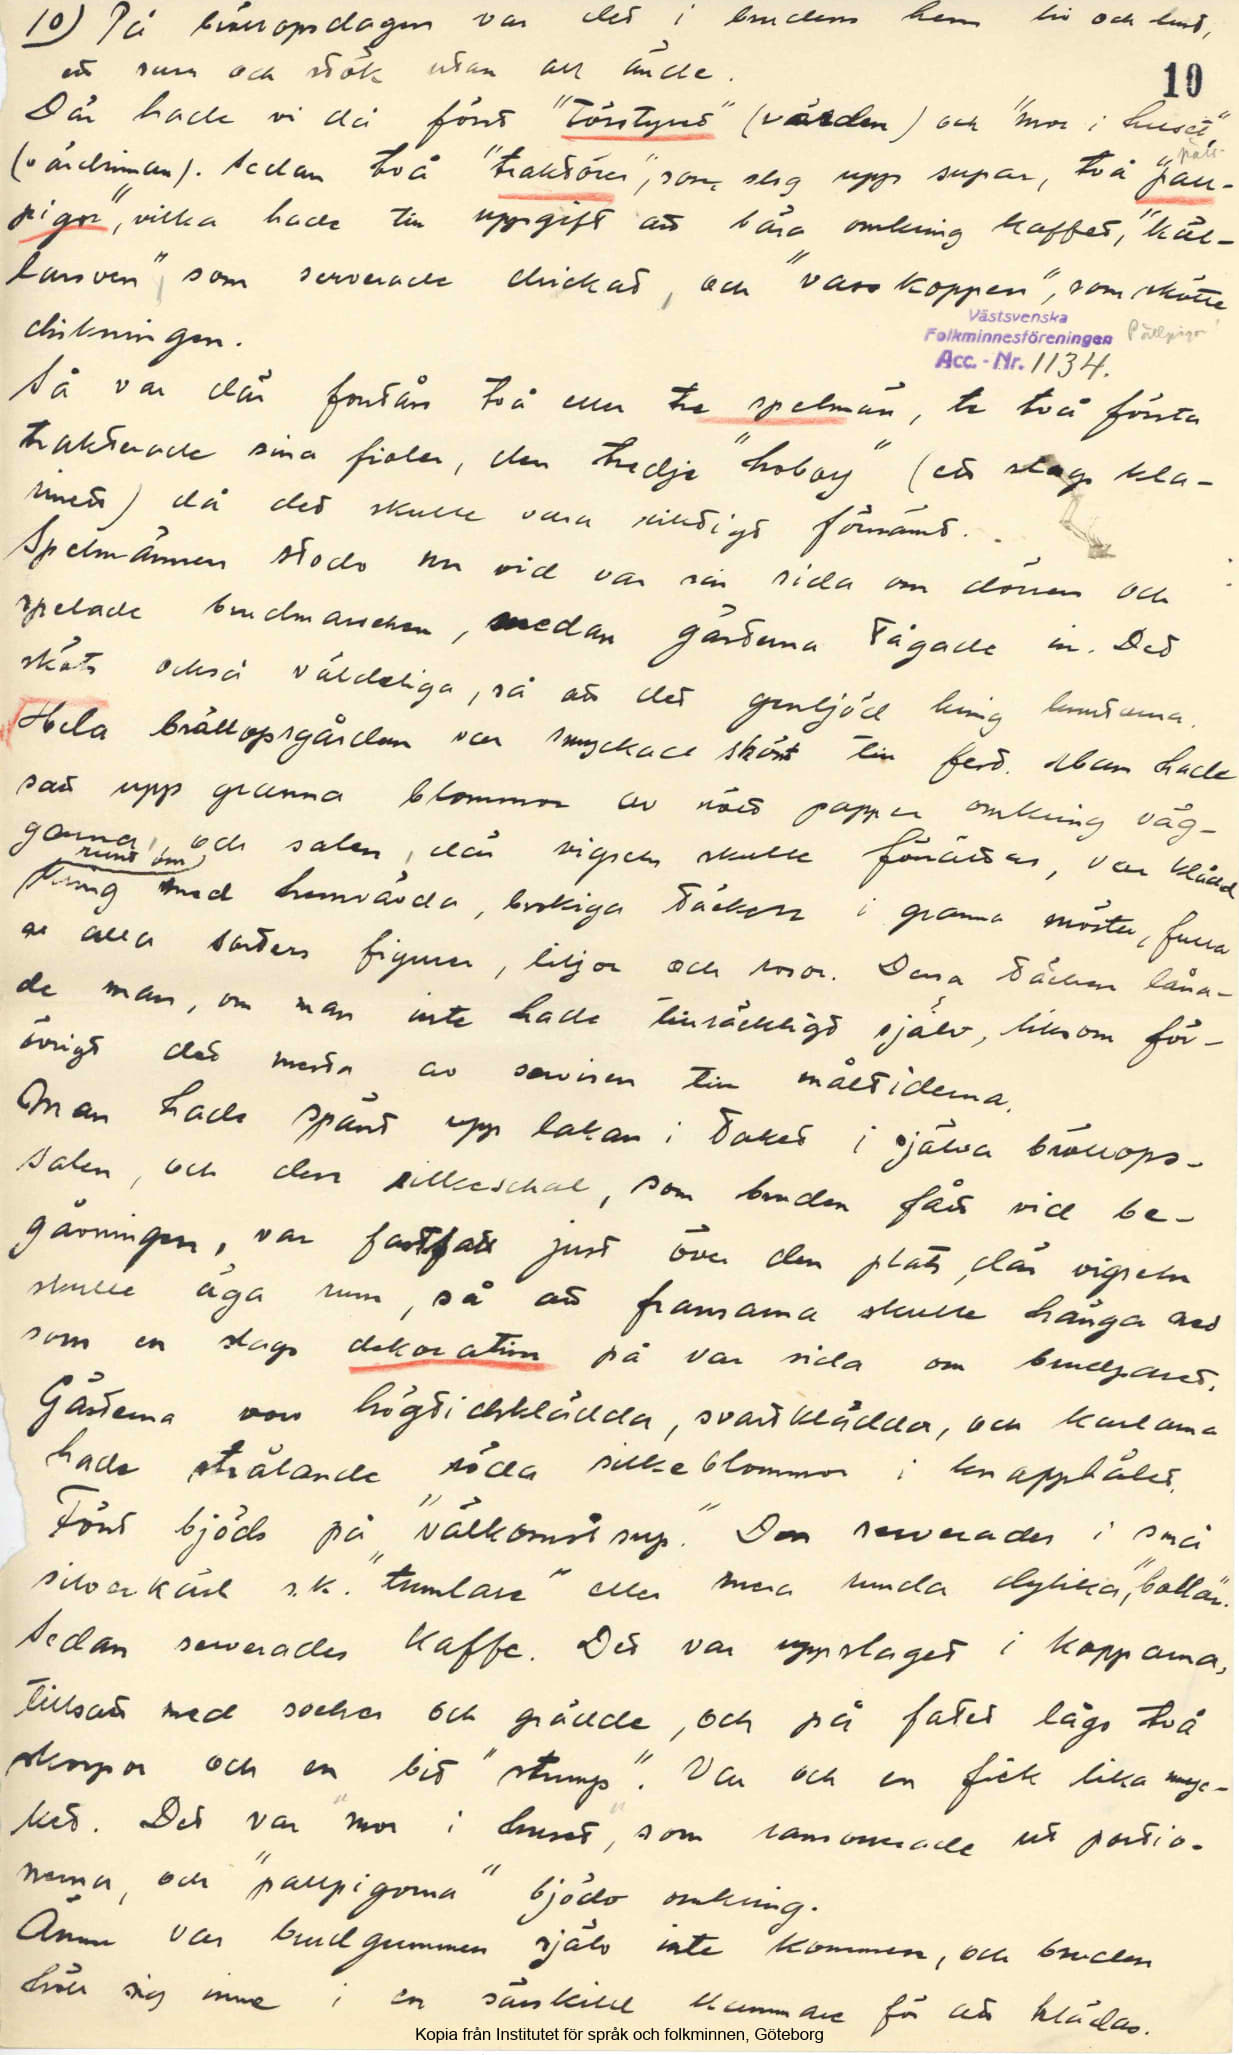 10) På bröllopsdagen var det i brudens hem liv och lust,
ett surr och stök utan all ände.
10
Där hade vi då först "törstyret" (värden) och "mor i huset"
(värdinnan). Sedan två "traktörer", som slog upp supar, två "pall-
pigor", vilka hade till uppgift att bära omkring kaffet, "käl-
larsven", som serverade drickat, och "vasskoppen", som skötte
diskningen.
Västsvenska
Folkminnesföreningen
Acc. - Nr. 1134.
Pallpigor
Så var där förstås två eller tre spelmän, de två första
trakterade sina fioler, den tredje "hoboy" (ett slags kla-
rinett) då det skulle vara riktigt förnämt.
Spelmännen stodo nu vid var sin sida om dörren och
spelade brudmarschen, medan gästerna tågade in. Det
sköts också väldeliga, så att det genljöd kring knutarna.
Hela bröllopsgården var smyckad skönt till fest. Man hade
satt upp granna blommor av rött papper omkring väg-
garna, och salen, där vigseln skulle förrättas, var klädd
runt om
kring med hemvävda, brokiga täcken i granna mönster, fulla
av alla sorters figurer, liljor och rosor. Dessa täcken låna-
de man, om man inte hade tillräckligt själv, liksom för-
övrigt det mesta av servisen till måltiderna.
Man hade spänt upp lakan i taket i själva bröllops-
salen, och den silkeschal, som bruden fått vid be-
gåvningen, var fastsatt just över den plats, där vigseln
skulle äga rum, så att fransarna skulle hänga ned
som en slags dekoration på var sida om brudparet.
Gästerna voro högtidsklädda, svartklädda, och karlarna
hade strålande röda silkeblommor i knapphålet.
Först bjöds på "välkomstsup." Den serverades i små
silverkärl s.k. "tumlare" eller mera runda dylika, "bollar".
Sedan serverades kaffe. Det var uppslaget i kopparna,
tillsatt med socker och grädde, och på fatet lågo två
skorpor och en bit "strump". Var och en fick lika myc-
ket. Det var "mor i huset", som ransonerade ut portio-
nerna, och "pallpigorna" bjödo omkring.
Ännu var brudgummen själv inte kommen, och bruden
höll sig inne i en särskild kammare för att klädas.
Kopia från Institutet för språk och folkminnen, Göteborg